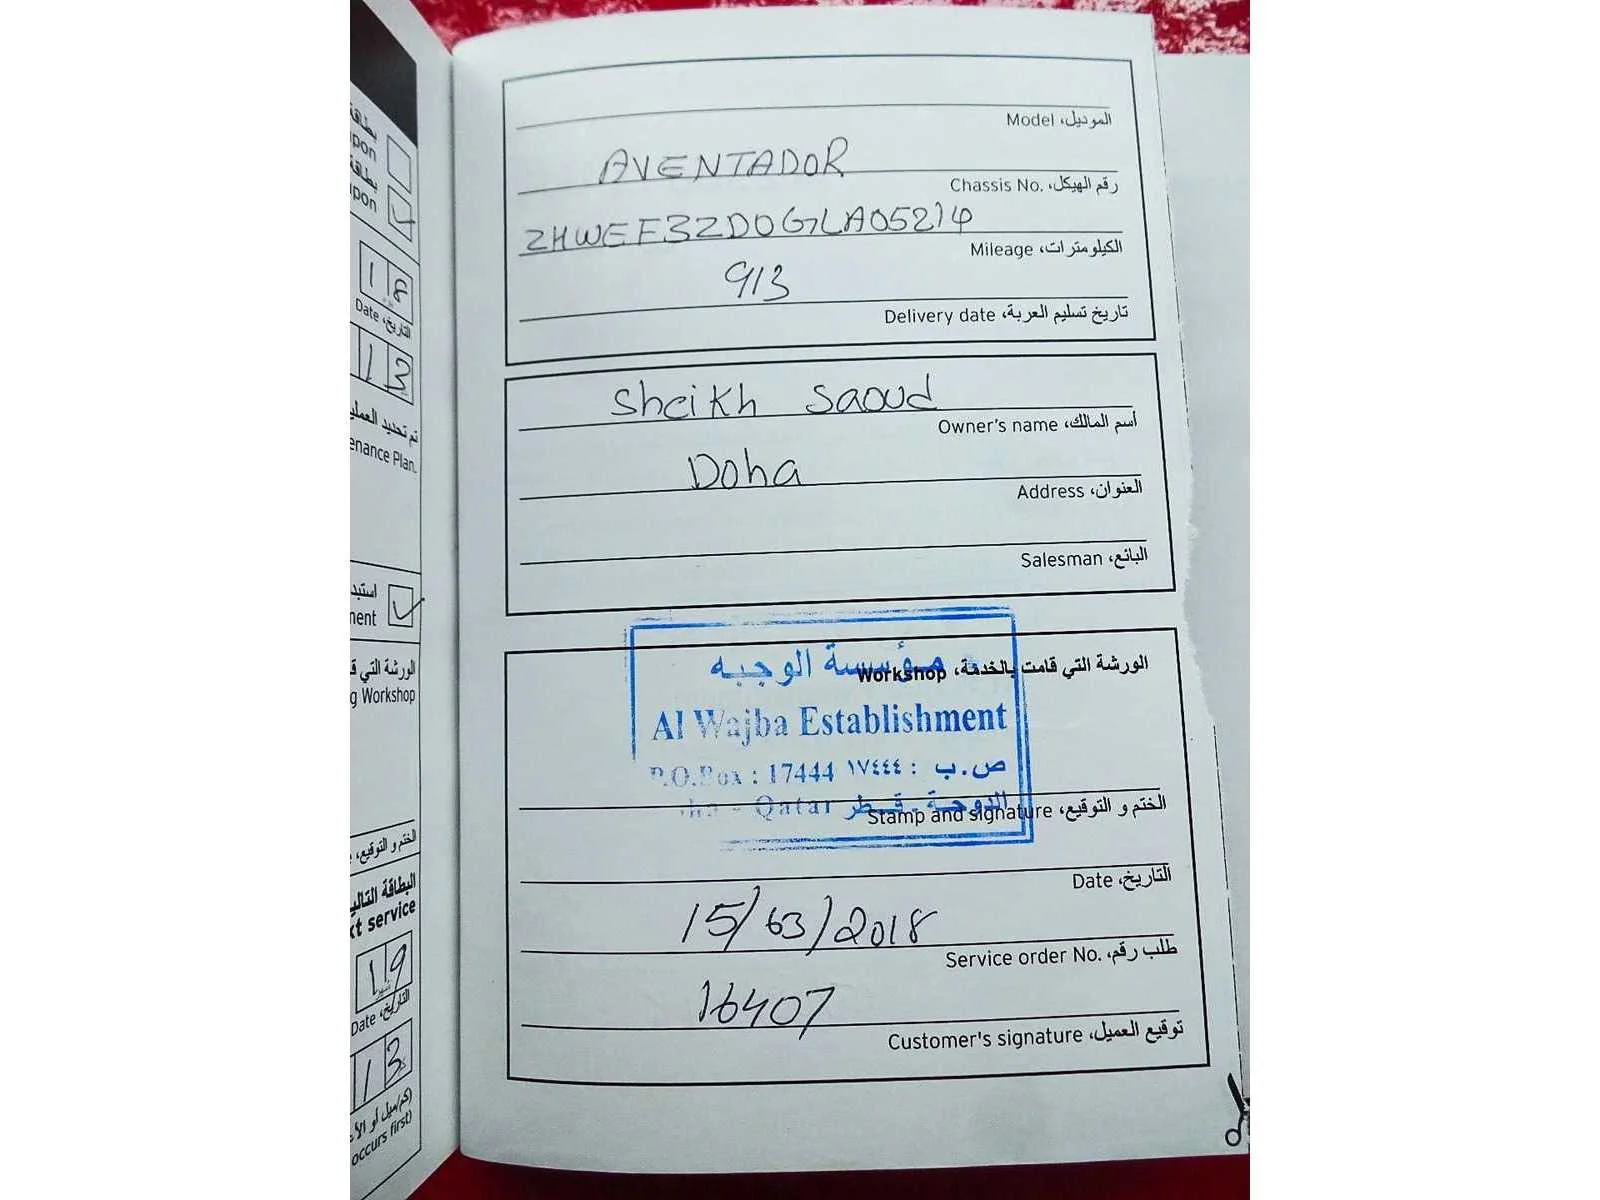 بطاقة
pon
بطاقة
pon
18
Date ،التاريخ
13
تم تحديد العملي
enance Plan.
استبد
nent
الورشة التي ق
g Workshop
الختم و التوقيع،
البطاقة التالي
xt service
19
Date ،التاريخ
13
(كم/ميل أو الأ
occurs first)
Model ،الموديل
AVENTADOR
Chassis No. ،رقم الهيكل
ZHWEF3ZD0GLA05214
Mileage ،الكيلومترات
913
Delivery date ،تاريخ تسليم العربة
Sheikh Saoud
Owner's name ،أسم المالك
Doha
Address ،العنوان
Salesman ،البائع
Workshop ،الورشة التي قامت بالخدمة
مؤسسة الوجبه
Al Wajba Establishment
P.O.Box : 17444 ص.ب : ١٧٤٤٤
ha - Qatar الدوحة - قطر
Stamp and signature ،الختم و التوقيع
Date ،التاريخ
15/03/2018
Service order No. ،طلب رقم
16407
Customer's signature ،توقيع العميل